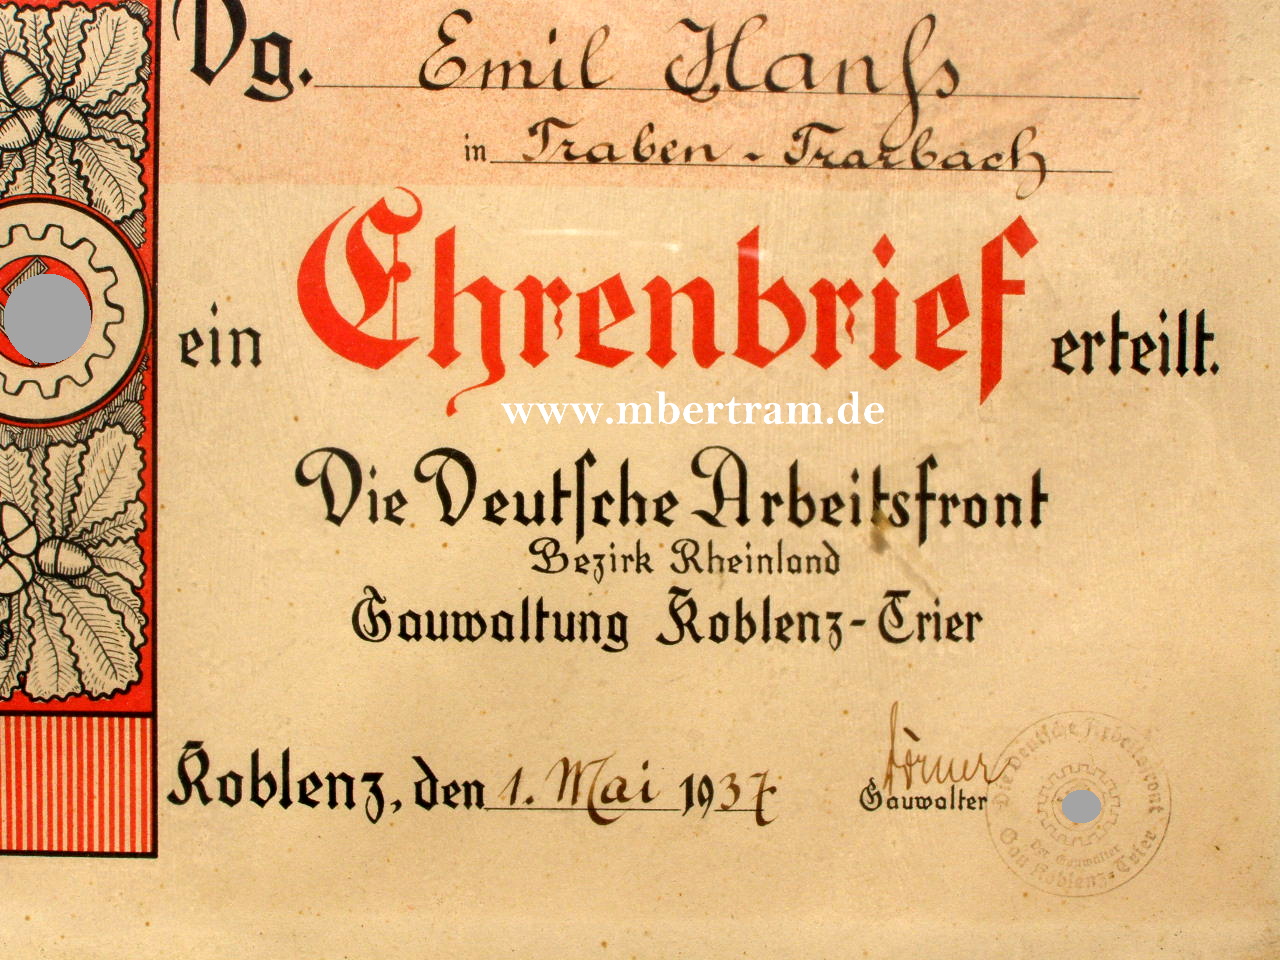 Dg. Emil Hanſs
in Traben-Trarbach
ein Ehrenbrief erteilt.
www.mbertram.de
Die Deutſche Arbeitsfront
Bezirk Rheinland
Gauwaltung Koblenz-Trier
Koblenz, den 1. Mai 1937
Gauwalter
Die Deutſche Arbeitsfront
Der Gauwalter
Gau Koblenz-Trier